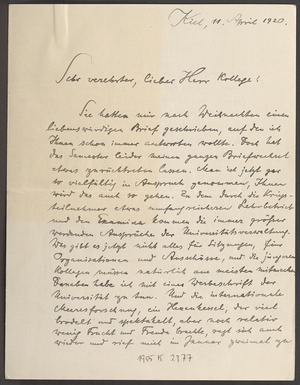 Kiel, 11. April 1920.
Sehr verehrter, lieber Herr Kollege!
Sie hatten mir nach Weihnachten einen
liebenswürdigen Brief geschrieben, auf den ich
Ihnen schon immer antworten wollte. Doch hat
das Semester leider meinen ganzen Briefwechsel
etwas zurücktreten lassen. Man ist jetzt gar
so vielfältig in Anspruch genommen, Ihnen
wird das auch so gehen. Zu dem durch die Kriegs-
teilnehmer etwas umfangreicheren Lehrbetrieb
und den Examina kommen die immer größer
werdenden Ansprüche der Universitätsverwaltung.
Was gibt es jetzt nicht alles für Sitzungen, für
Organisationen und Ausschüsse, und die jüngeren
Kollegen müssen natürlich am meisten mitmachen.
Daneben habe ich mit einer Werbeschrift der
Universität zu tun. Und die internationale
Meeresforschung, ein Hexenkessel, der viel
brodelt und spektakelt, aber noch relativ
wenig Frucht und Freude brachte, regt sich auch
wieder und rief mich im Januar zweimal zu